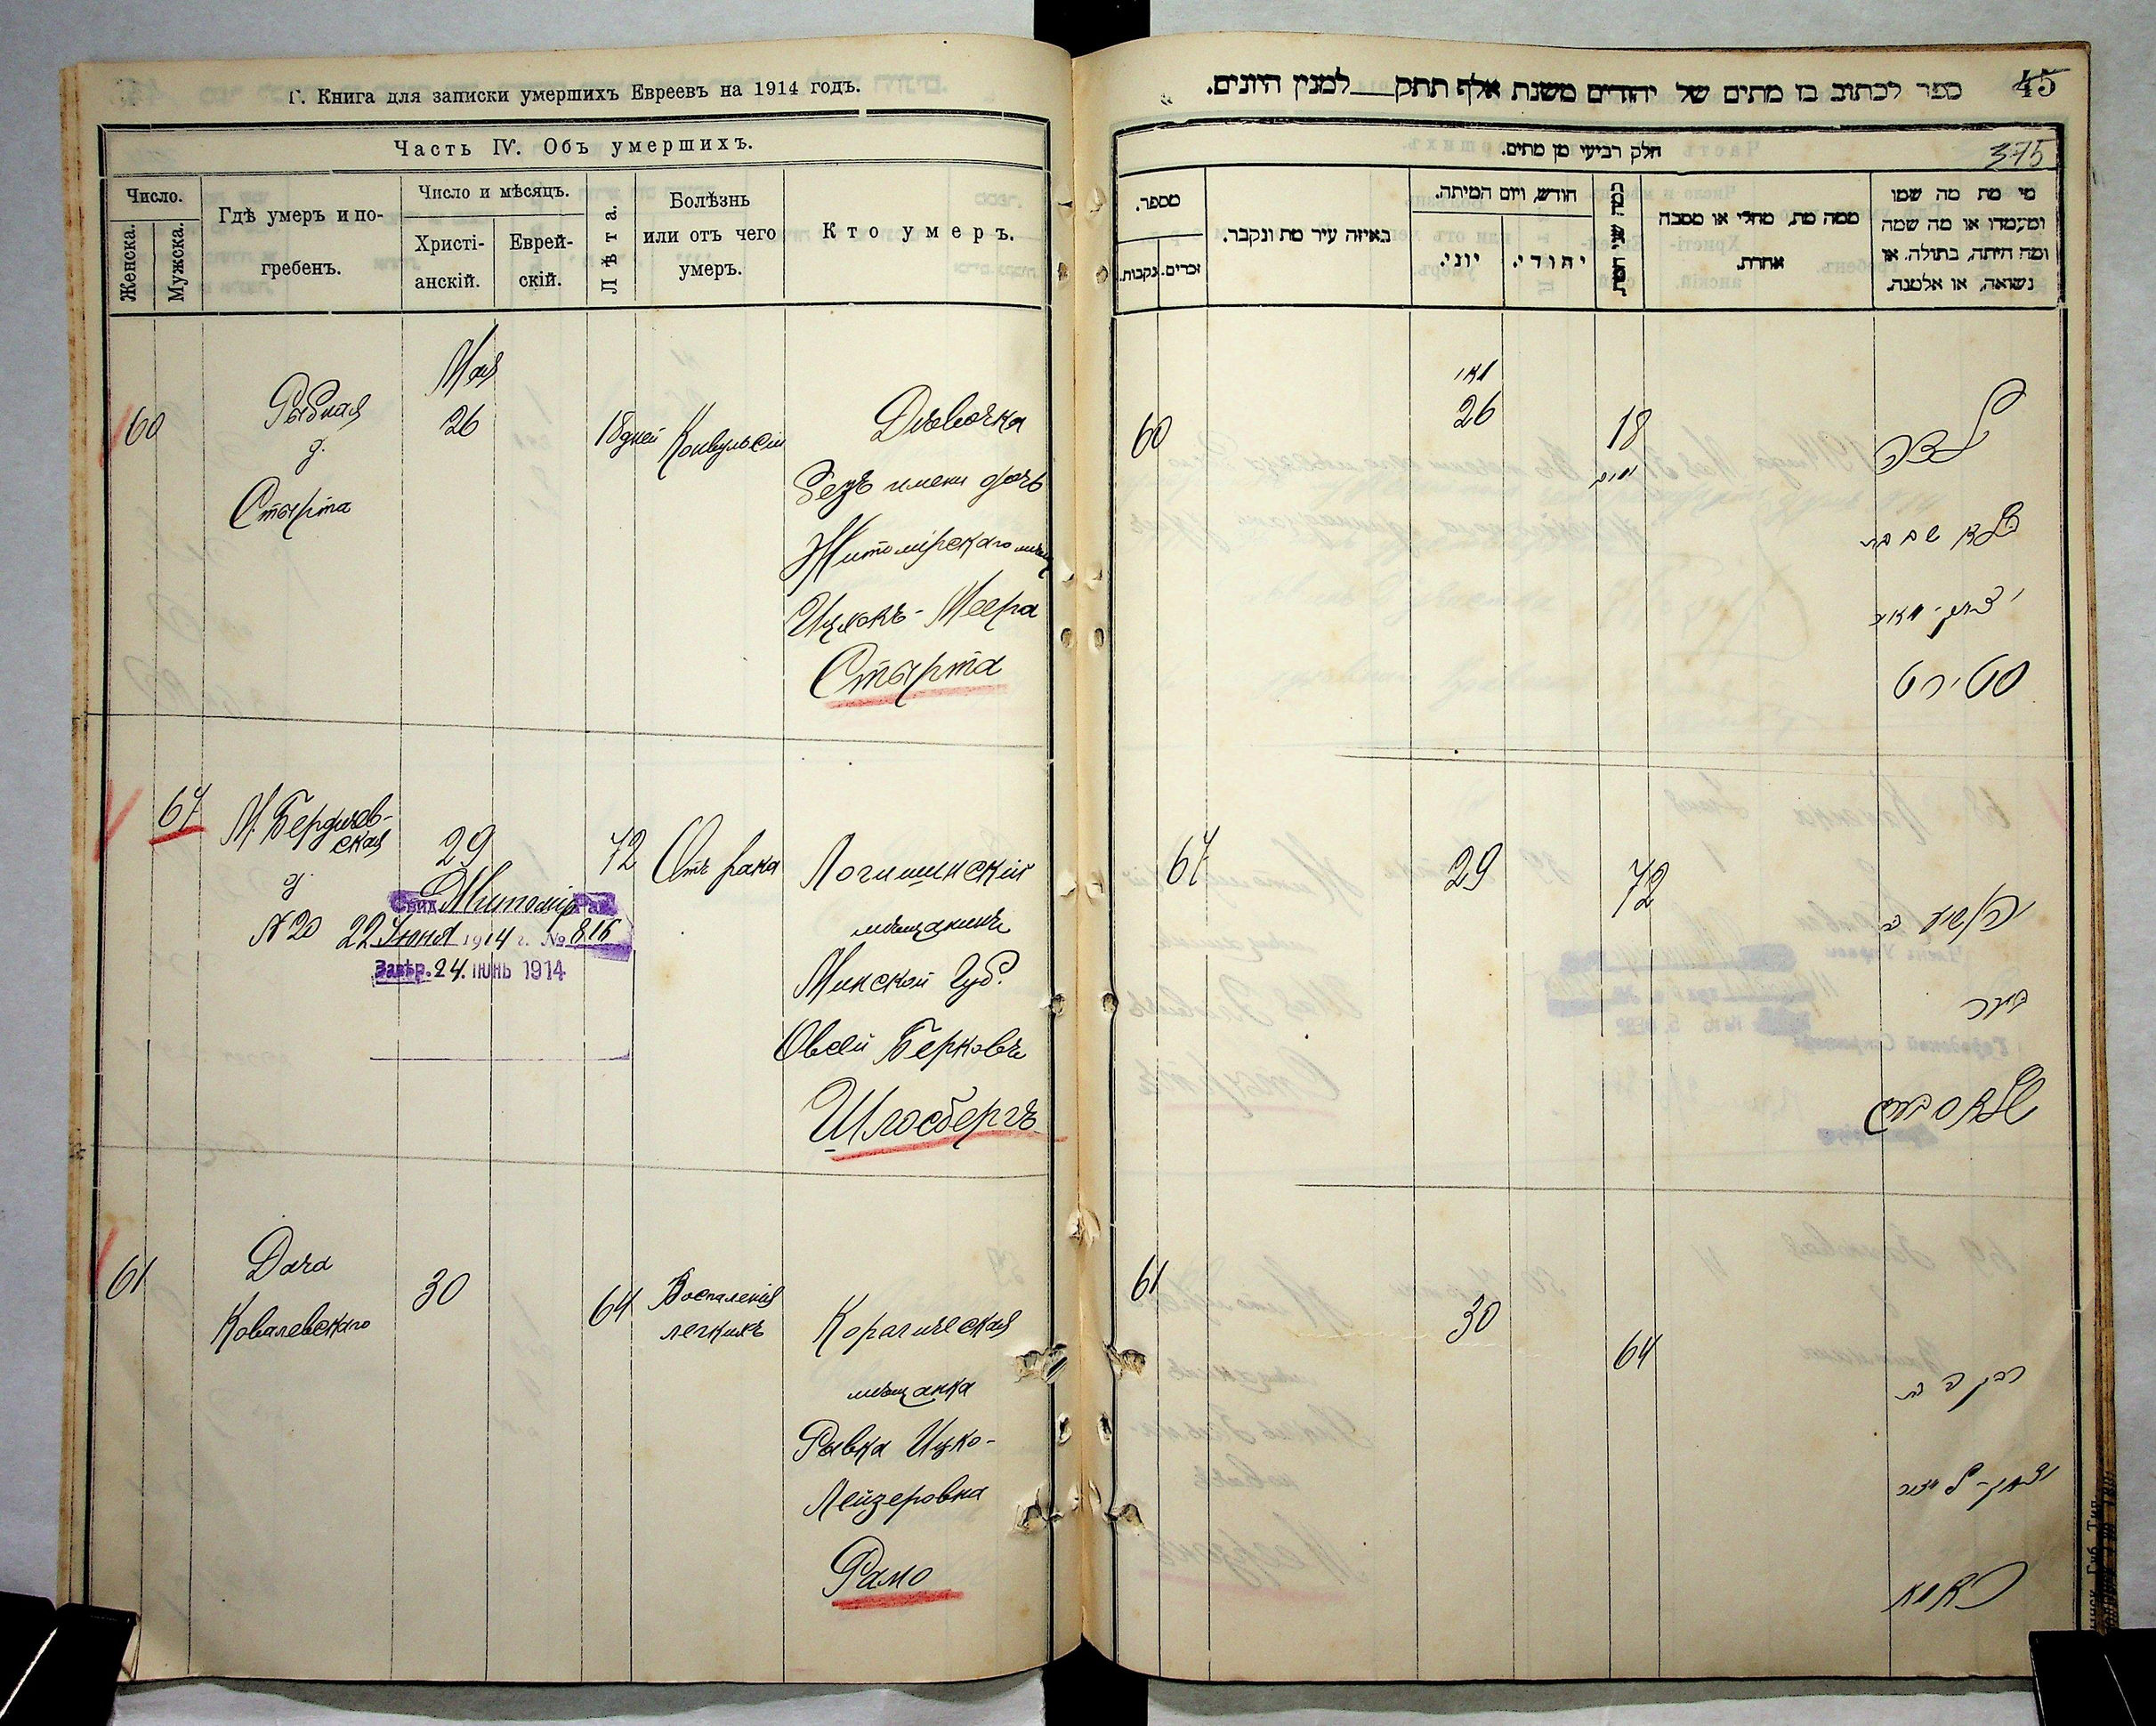 Г. Книга для записки умершихъ Евреевъ на 1914 годъ.
Часть IV. Объ умершихъ.
Число.
Женска.
Мужска.
Гдѣ умеръ и по-
гребенъ.
Число и мѣсяцъ.
Христі-
анскій.
Еврей-
скій.
Лѣта.
Болѣзнь
или отъ чего
умеръ.
Кто умеръ.
60
Рыбная
д.
Стырта
Мая
26
18 дней
Конвульсіи
Дѣвочка
безъ имени дочь
Житомірскаго мѣщ
Ицхокъ-Меера
Стырта
67
М. Бердичев-
ская
д.
№ 20
29
Свид. Житомір Рав.
22 Іюня 1914 г. № 816
Завѣр. 24. ІЮНЬ 1914
72
Отъ рака
Логишинскій
мѣщанинъ
Минской Губ.
Овсей Берковъ
Шлосбергъ
61
Дача
Ковалевскаго
30
64
Воспаленія
легкихъ
мѣщанка
Рывка Ицко-
Лейзеровна
Рамо
ספר לכתוב בו מתים של יהודים משנת אלף תתק למנין היונים.
45
חלק רביעי מן מתים.
375
מספר.
נקבות.
זכרים.
באיזה עיר מת ונקבר.
חודש, ויום המיתה.
יוני.
יהודי.
כמה שני המת
ממה מת, מחלי או מסבה
אחרת.
מי מת מה שמו
ומעמדו או מה שמה
ומה היתה, בתולה, או
נשואה, או אלמנה.
60
מאי
26
18
ימים
ילדה
בלא שם בת
יצחק-מאיר
סטירט
67
29
72
יהושע ב
בערק
שלאסבערג
61
30
64
רבקה בת
יצחק-ליזער
ראמא